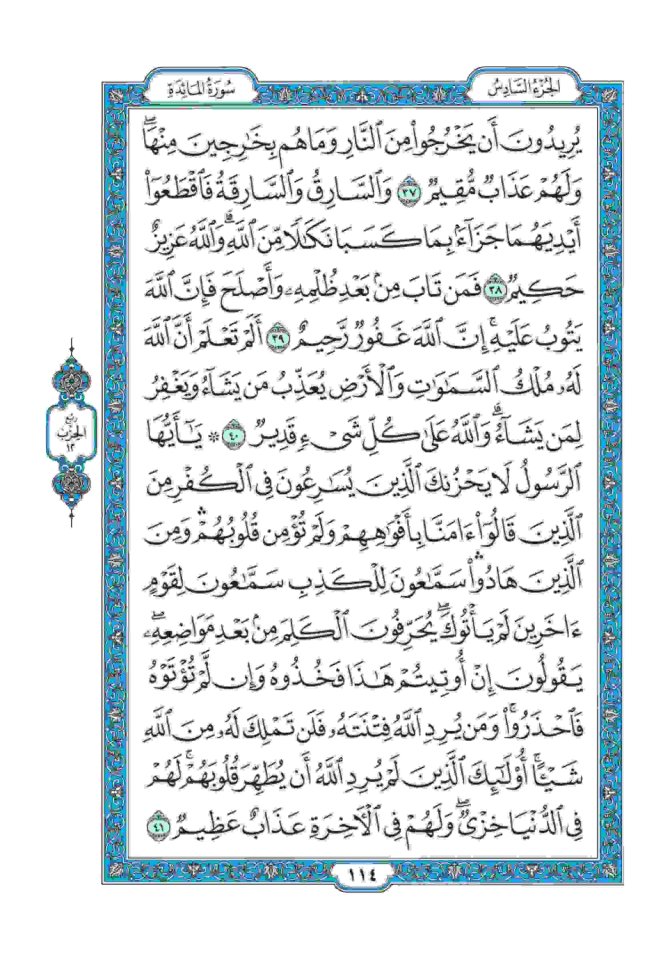 سُورَةُ المَائِدَةِ
الجُزْءُ السَّادِسُ
يُرِيدُونَ أَن يَخْرُجُوا۟ مِنَ ٱلنَّارِ وَمَا هُم بِخَـٰرِجِينَ مِنْهَا ۖ
وَلَهُمْ عَذَابٌ مُّقِيمٌ ٣٧ وَٱلسَّارِقُ وَٱلسَّارِقَةُ فَٱقْطَعُوٓا۟
أَيْدِيَهُمَا جَزَآءًۢ بِمَا كَسَبَا نَكَـٰلًا مِّنَ ٱللَّهِ ۗ وَٱللَّهُ عَزِيزٌ
حَكِيمٌ ٣٨ فَمَن تَابَ مِنۢ بَعْدِ ظُلْمِهِۦ وَأَصْلَحَ فَإِنَّ ٱللَّهَ
يَتُوبُ عَلَيْهِ ۗ إِنَّ ٱللَّهَ غَفُورٌ رَّحِيمٌ ٣٩ أَلَمْ تَعْلَمْ أَنَّ ٱللَّهَ
لَهُۥ مُلْكُ ٱلسَّمَـٰوَٰتِ وَٱلْأَرْضِ يُعَذِّبُ مَن يَشَآءُ وَيَغْفِرُ
لِمَن يَشَآءُ ۗ وَٱللَّهُ عَلَىٰ كُلِّ شَىْءٍ قَدِيرٌ ٤٠ ۞ يَـٰٓأَيُّهَا
ٱلرَّسُولُ لَا يَحْزُنكَ ٱلَّذِينَ يُسَـٰرِعُونَ فِى ٱلْكُفْرِ مِنَ
ٱلَّذِينَ قَالُوٓا۟ ءَامَنَّا بِأَفْوَٰهِهِمْ وَلَمْ تُؤْمِن قُلُوبُهُمْ ۛ وَمِنَ
ٱلَّذِينَ هَادُوا۟ ۛ سَمَّـٰعُونَ لِلْكَذِبِ سَمَّـٰعُونَ لِقَوْمٍ
ءَاخَرِينَ لَمْ يَأْتُوكَ ۖ يُحَرِّفُونَ ٱلْكَلِمَ مِنۢ بَعْدِ مَوَاضِعِهِۦ ۖ
يَقُولُونَ إِنْ أُوتِيتُمْ هَـٰذَا فَخُذُوهُ وَإِن لَّمْ تُؤْتَوْهُ
فَٱحْذَرُوا۟ ۚ وَمَن يُرِدِ ٱللَّهُ فِتْنَتَهُۥ فَلَن تَمْلِكَ لَهُۥ مِنَ ٱللَّهِ
شَيْـًٔا ۚ أُو۟لَـٰٓئِكَ ٱلَّذِينَ لَمْ يُرِدِ ٱللَّهُ أَن يُطَهِّرَ قُلُوبَهُمْ ۚ لَهُمْ
فِى ٱلدُّنْيَا خِزْىٌ ۖ وَلَهُمْ فِى ٱلْـَٔاخِرَةِ عَذَابٌ عَظِيمٌ ٤١
ربع
الحزب
١٢
١١٤